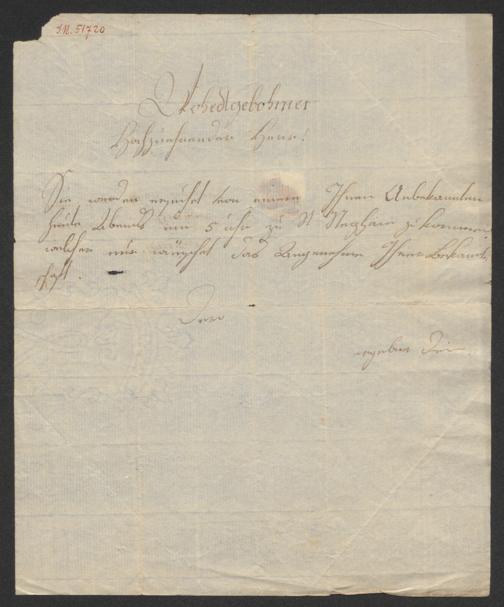 J.N. 51720
Wohedlgebohrner
Hochzuehrender Herr!
Sie werden ersuchet von einem Ihnen Unbekannten
heute Abends um 5 Uhr zu St zu kommen,
welcher nur wünschet das Angenehme Ihrer Bekannt
schaft.
Dero
ergebner